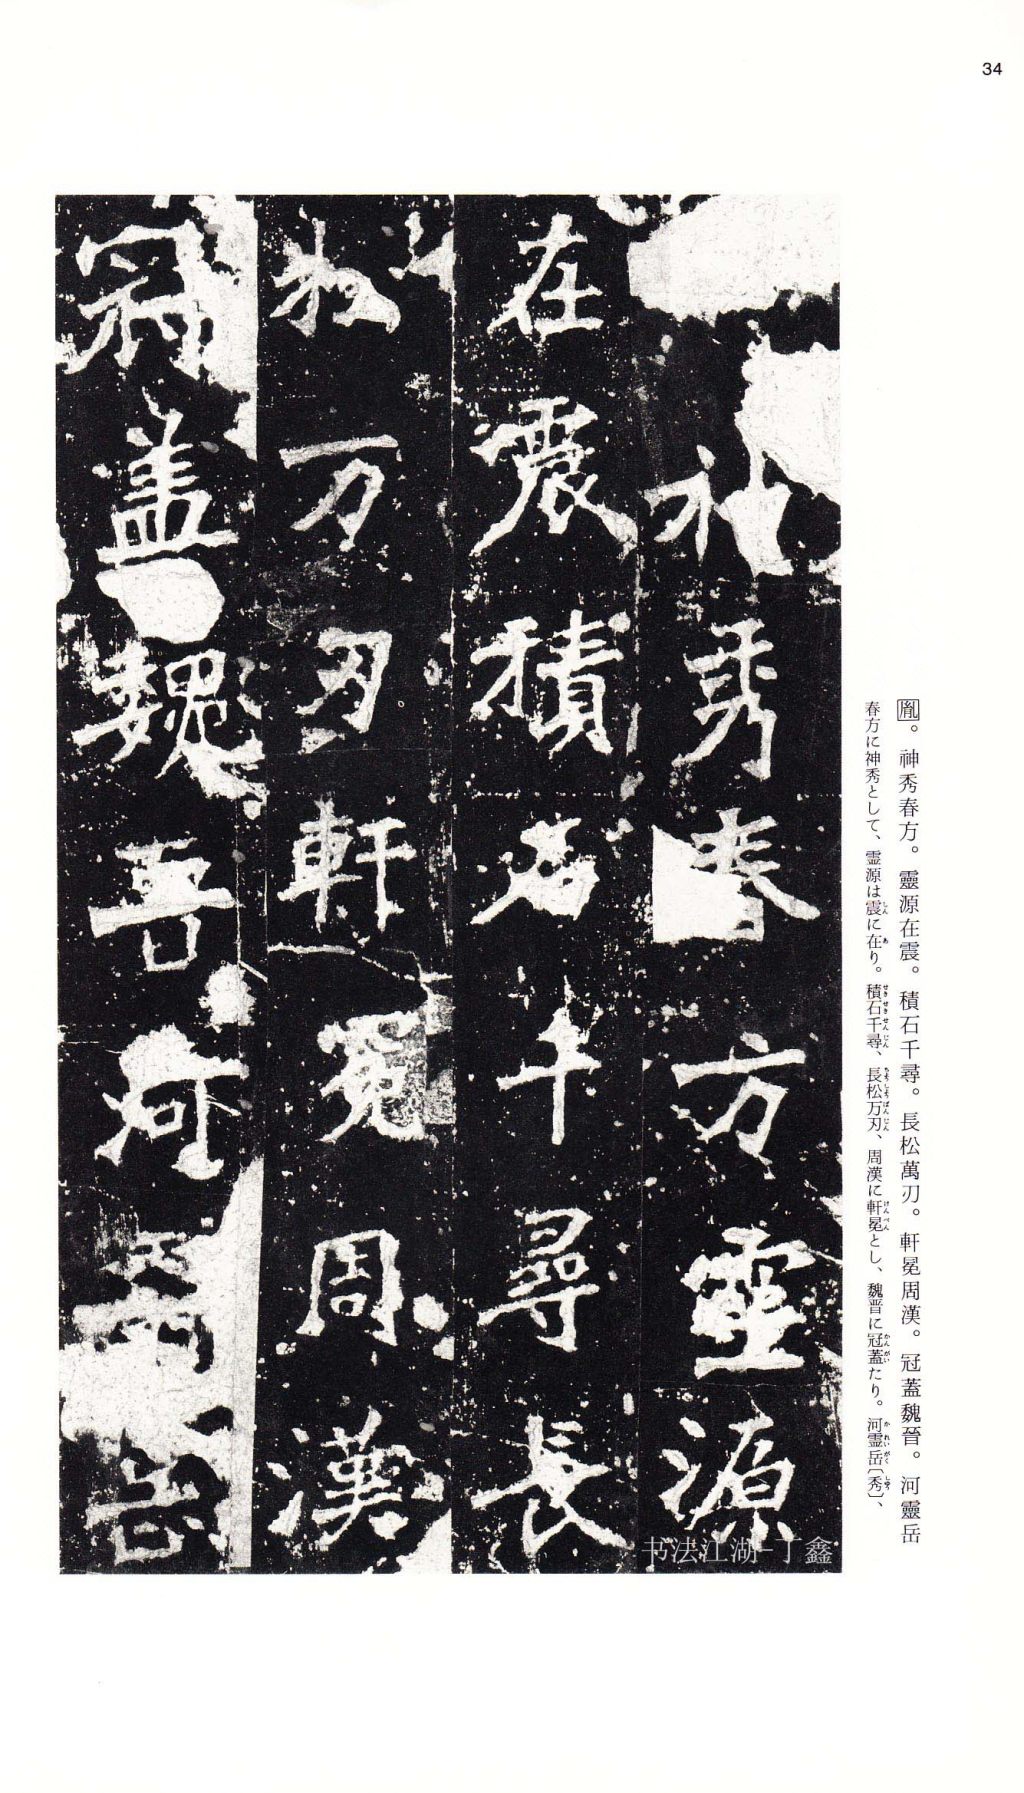 34
胤。神秀春方。靈源在震。積石千尋。長松萬刃。軒冕周漢。冠蓋魏晉。河靈岳
春方に神秀として、霊源は震に在り。積石千尋、長松万刃、周漢に軒冕とし、魏晋に冠蓋たり。河霊岳〔秀〕、
神秀春方靈源
在震積石千尋長
松万刃軒冕周漢
冠盖魏晉河靈岳
书法江湖-丁鑫